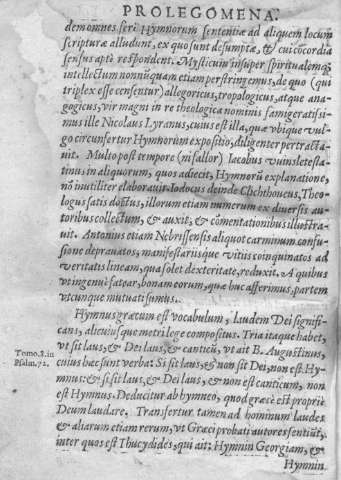 PROLEGOMENA.
dem omnes ferè Hymnorum sententiæ ad aliquem locum
scripturæ alludunt, ex quo sunt desumptæ, & cui cōcordia
sensus aptè respondent. Mysticum insuper spiritualemq́;
intellectum nonnūquam etiam perstringemus, de quo (qui
triplex esse censentur) allegoricus, tropologicus, atque ana-
gogicus, vir magni in re theologica nominis famigeratissi-
mus ille Nicolaus Lyranus, cuius est illa, quæ vbique vul-
go circunfertur Hymnorūm expositio, diligenter pertracta-
uit. Multo post tempore (ni fallor) Iacobus vuinslestela-
tinus in aliquorum, quos adiecit, Hymnorū explanatione,
nō inutiliter elaborauit. Iodocus deinde Clichthoueus, Theo-
logus satis doctus, illorum etiam numerum ex diuersis au-
toribus collectum, & auxit, & cōmentationibus illustra-
uit. Antonius etiam Nebrissensis aliquot carminum confu-
sione deprauatos, manifestariisque vitiis coinquinatos ad
veritatis lineam, qua solet dexteritate, reduxit. A quibus
vt ingenuè fatear, bonam eorum, quæ huc afferimus, partem
vtcunque mutuati sumus.
Hymnus græcum est vocabulum, laudem Dei signifi-
cans, alicuiusque metri lege compositus. Tria itaque habet,
vt sit laus, & Dei laus, & canticū, vt ait B. Augustinus,
Tomo.8.in
Psalm.72.
cuius hæc sunt verba: Si sit laus, & non sit Dei, non est Hy-
mnus: & si sit laus, & Dei laus, & non est canticum, non
est Hymnus. Deducitur ab hymneo, quod græcè est propriè
Deum laudare. Transfertur tamen ad hominum laudes
& aliarum etiam rerum, vt Græci probati autores sentiūt,
inter quos est Thucydides, qui ait: Hymnin Georgiam, &
Hymnin